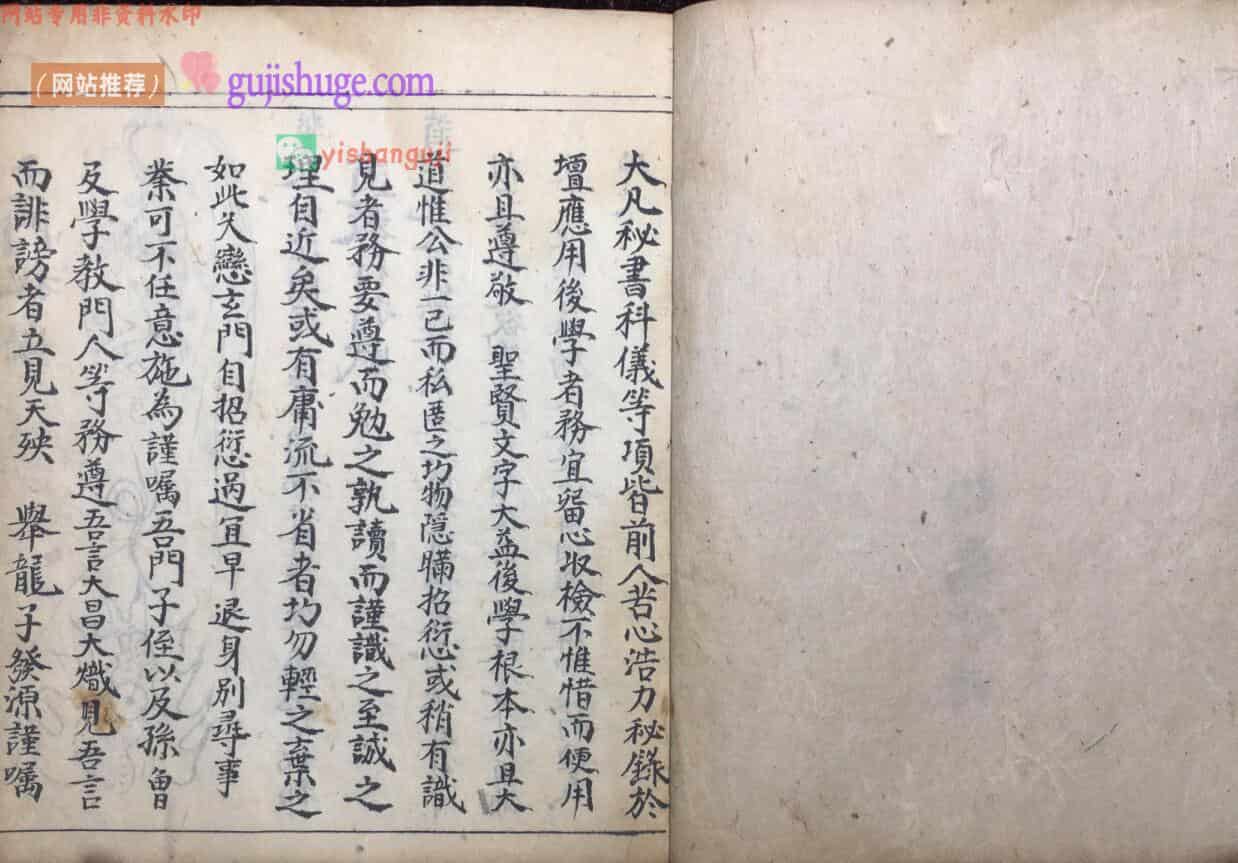 网站专用非资料水印
（网站推荐）
gujishuge.com
yishanguji
大凡秘書科儀等項皆前人苦心浩力秘錄於
壇應用後學者務宜留心收檢不惟惜而便用
亦且尊敬 聖賢文字大益後學根本亦且大
道惟公非一己而私匿之均物隱瞞招愆或稍有識
見者務要尊而勉之孰讀而謹識之至誠之
理自近矣或有庸流不省者均勿輕之棄之
如此欠戀玄門自招愆過宜早退身別尋事
業可不任意施為謹嘱吾門子侄以及孫曾
及學教門人等務遵吾言大昌大熾見吾言
而誹謗者立見天殃 舉龍子發源謹嘱